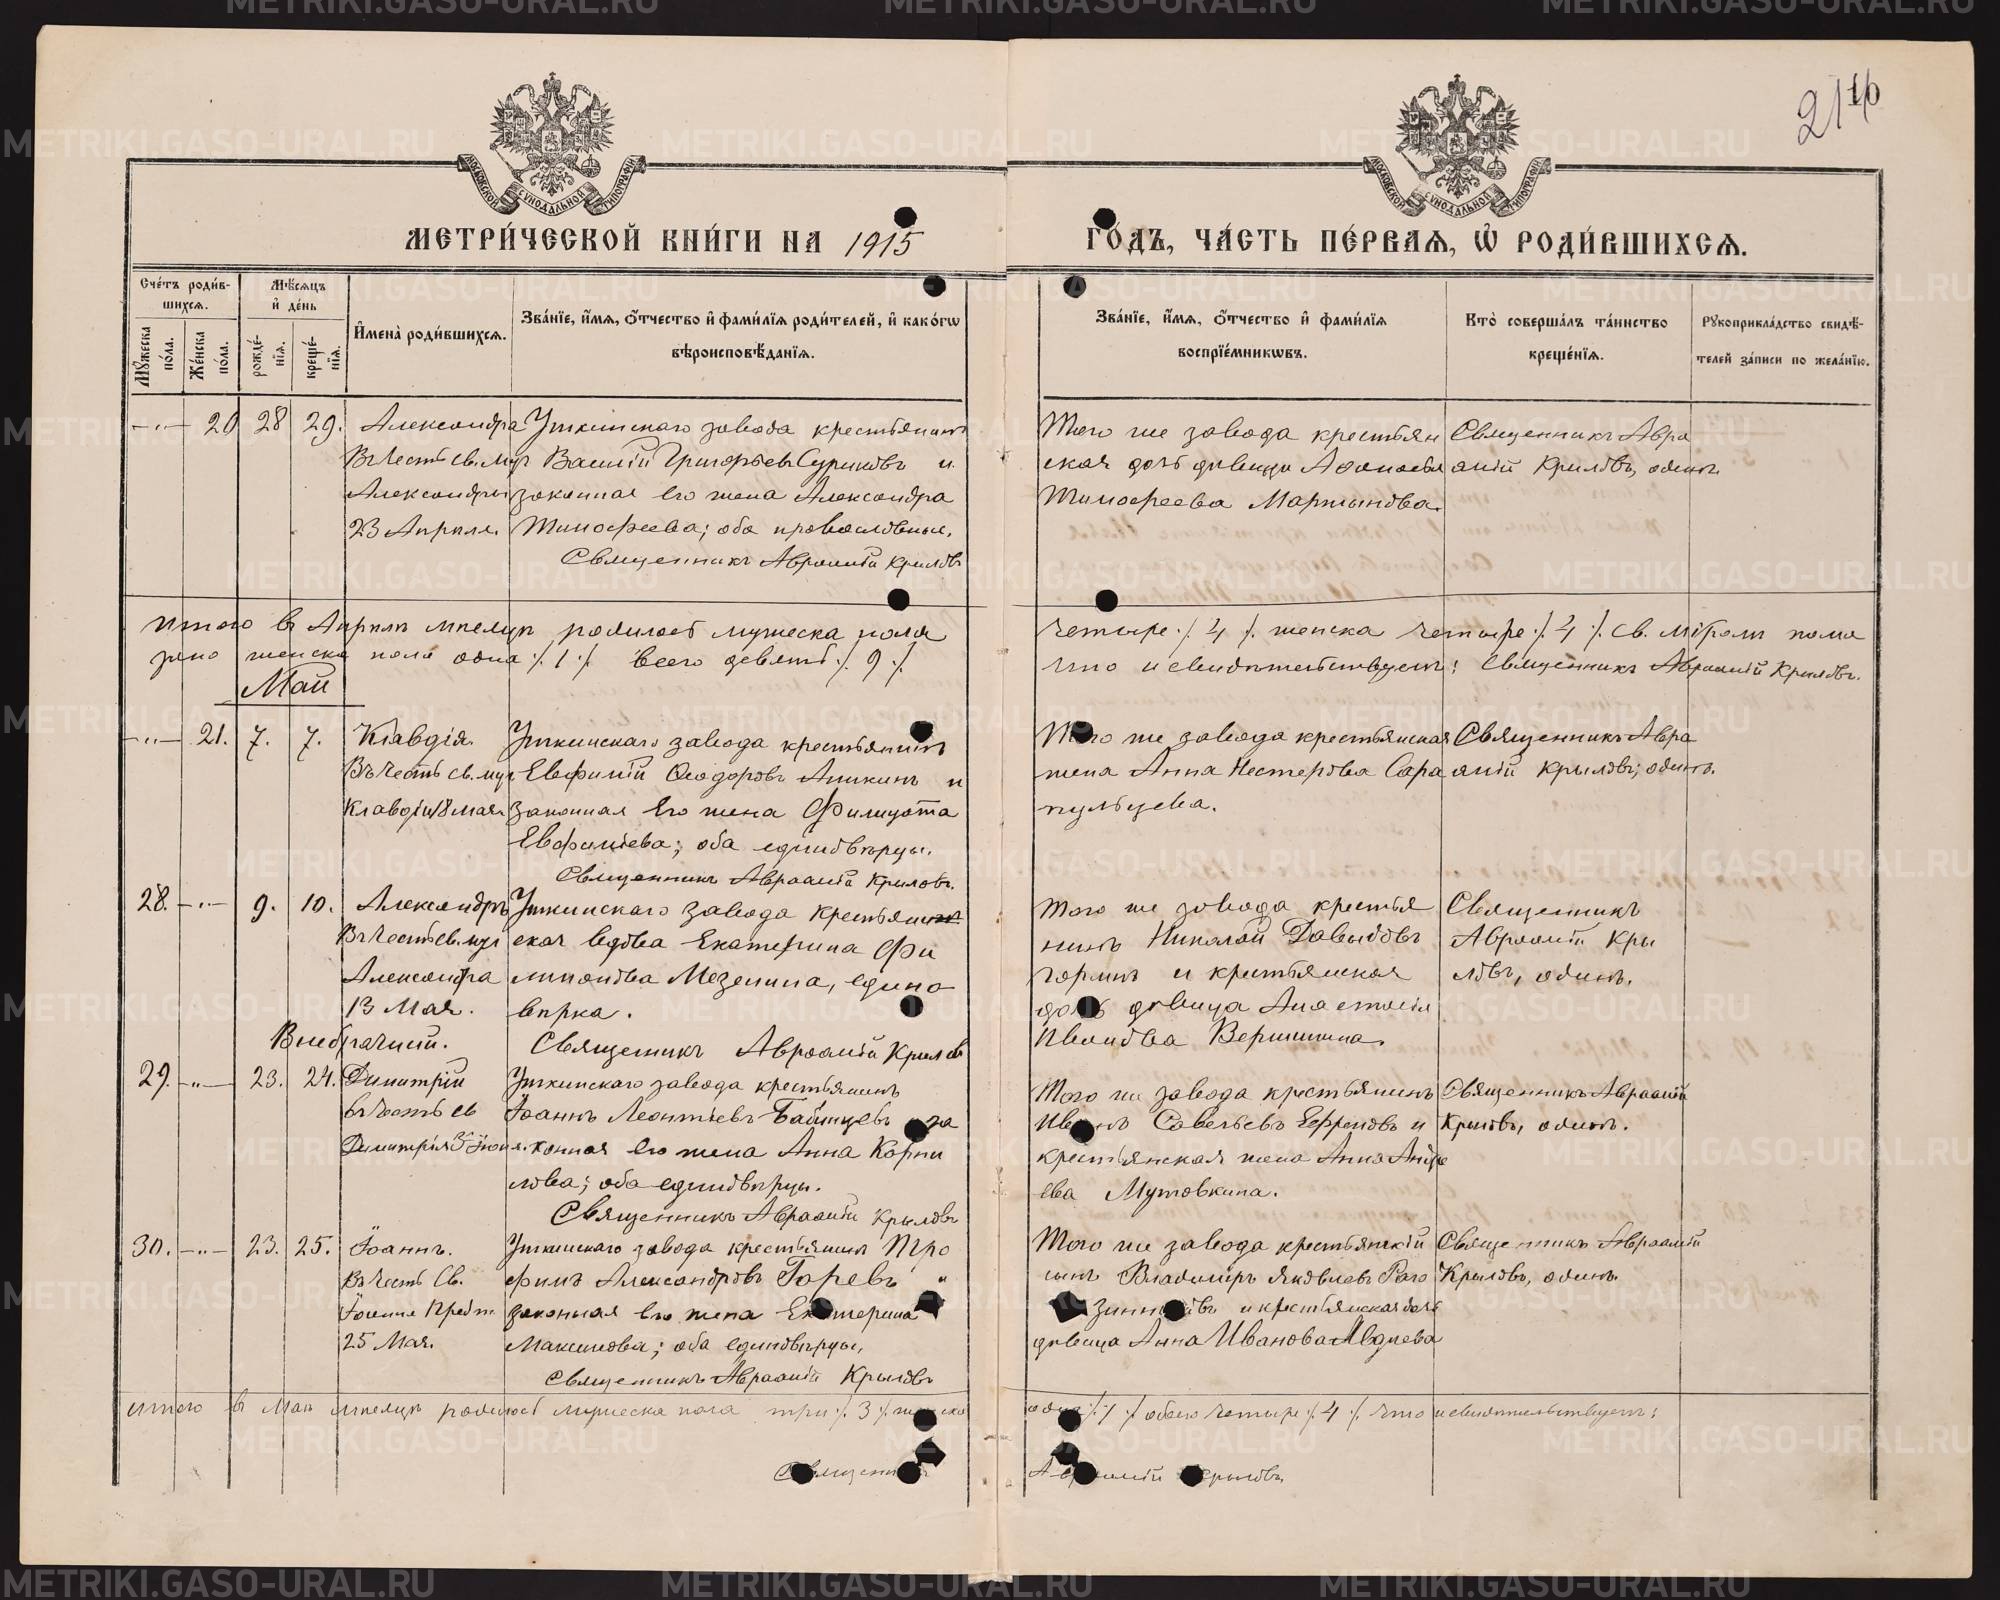 МЕТРИ́ЧЕСКОЙ КНИ́ГИ НА 1915
ГО́ДЪ, ЧА́СТЬ ПЕ́РВАѦ, Ѡ҆ РОДИ́ВШИХСѦ.
216
Сче́тъ роди́в-
шихсѧ.
Мѣ́сѧцъ
и҆ де́нь
Мꙋ́жеска по́ла.
Же́нска по́ла.
рожде́-
нїѧ.
креще́-
нїѧ.
И҆мена̀ роди́вшихсѧ.
Зва́нїе, и҆́мѧ, ѻ҆́тчество и҆ фами́лїѧ роди́телей, и҆ како́гѡ
вѣроисповѣ́данїѧ.
Зва́нїе, и҆́мѧ, ѻ҆́тчество и҆ фами́лїѧ
воспрїе́мникѡвъ.
Кто̀ соверша́лъ та́инство
креще́нїѧ.
Рꙋкоприкла́дство свидѣ́-
телей за́писи по жела́нїю.
20 28 29.
Александра
Въ честь св. муч
Александры
23 Апрѣля.
Уткинскаго завода крестьянинъ
Василій Григорьевъ Суриковъ и
законная его жена Александра
Тимофеева; оба православные.
Священникъ Авраамій Крыловъ
Того же завода крестьян
ская дочь дѣвица Афанасія
Тимофеева Мартынова.
Священникъ Авра
амій Крыловъ, одинъ.
Итого въ Апрѣлѣ мѣсяцѣ родилось мужеска пола
четыре ./. 4 ./. женска четыре ./. 4 ./. св. мѵромъ пома
зано женска пола одна ./. 1 ./. всего девять ./. 9 ./.
что и свидѣтельствуетъ: Священникъ Авраамій Крыловъ.
Май
21. 7. 7.
Клавдія.
Въ честь св. муч
Клавдіи 18 мая.
Уткинскаго завода крестьянинъ
Евфимій Ѳеодоровъ Аникинъ и
законная его жена Филицата
Евфиміева; оба единовѣрцы.
Священникъ Авраамій Крыловъ.
Того же завода крестьянская
жена Анна Нестерова Сара
пульцева.
Священникъ Авра
амій Крыловъ, одинъ.
28. 9. 10.
Александръ
Въ честь св. муч
Александра
13 Мая.
Внебрачный.
Уткинскаго завода крестьян
ская вдова Екатерина Фи
липпова Мезенина, едино
вѣрка.
Священникъ Авраамій Крыловъ
Того же завода крестья
нинъ Николай Давыдовъ
Горинъ и крестьянская
дочь дѣвица Анастасія
Иванова Вершинина.
Священникъ
Авраамій Кры
ловъ, одинъ.
29. 23. 24.
Димитрій
въ честь св
Димитрія 3 іюня.
Уткинскаго завода крестьянинъ
Іоаннъ Леонтіевъ Бабинцевъ за
конная его жена Анна Корни
лова; оба единовѣрцы.
Священникъ Авраамій Крыловъ
Того же завода крестьянинъ
Иванъ Савельевъ Ефремовъ и
крестьянская жена Анна Андре
ева Мутовкина.
Священникъ Авраамій
Крыловъ, одинъ.
30. 23. 25.
Іоаннъ.
Въ честь Св.
Іоанна Предт.
25 Мая.
Уткинскаго завода крестьянинъ Тро
фимъ Александровъ Горевъ и
законная его жена Екатерина
Максимова; оба единовѣрцы,
Священникъ Авраамій Крыловъ
Того же завода крестьянскій
сынъ Владимiръ Яковлевъ Рага
зинниковъ и крестьянская дочь
дѣвица Анна Иванова Авдѣева
Священникъ Авраамій
Крыловъ, одинъ.
Итого въ Маѣ мѣсяцѣ родилось мужеска пола три ./. 3 ./. женска
одна ./. 1 ./. обоего четыре ./. 4 ./. что и свидѣтельствуетъ:
Священникъ
Авраамій Крыловъ.